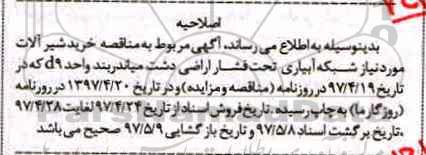 اصلاحیه
بدینوسیله به اطلاع می رساند، آگهی مربوط به مناقصه خرید شیر آلات
مورد نیاز شبکه آبیاری تحت فشار اراضی دشت میاندربند واحد d9 که در
تاریخ ۹۷/۴/۱۹ در روزنامه (مناقصه و مزایده) و در تاریخ ۱۳۹۷/۴/۲۰ در روزنامه
(روزگار ما) به چاپ رسیده، تاریخ فروش اسناد از تاریخ ۹۷/۴/۲۴ لغایت ۹۷/۴/۲۸
،تاریخ برگشت اسناد ۹۷/۵/۸ و تاریخ بازگشایی ۹۷/۵/۹ صحیح می باشد